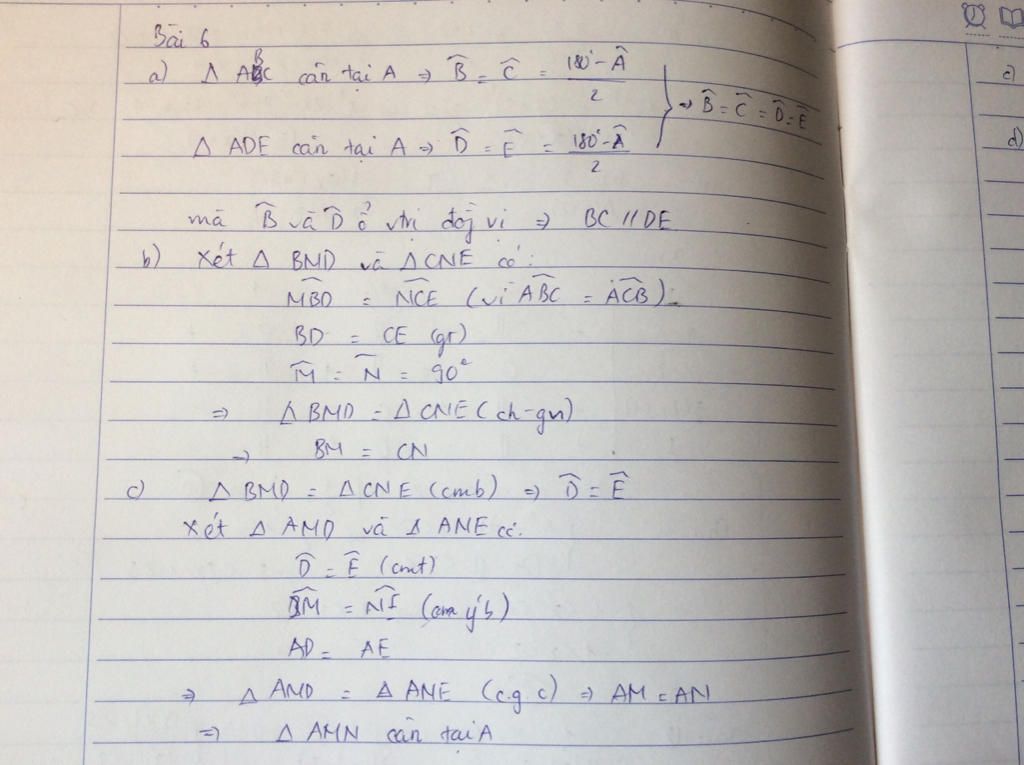 Bài 6
a) Δ ABC cân tại A ⇒ B̂ = Ĉ = (180° - Â)/2
Δ ADE cân tại A ⇒ D̂ = Ê = (180° - Â)/2
⇒ B̂ = Ĉ = D̂ = Ê
mà B̂ và D̂ ở vtrị đồg vị ⇒ BC // DE
b) Xét Δ BMD và Δ CNE có:
MBD = NCE (vì ABC = ACB)
BD = CE (gt)
M̂ = N̂ = 90°
⇒ Δ BMD = Δ CNE (ch-gn)
→ BM = CN
c) Δ BMD = Δ CNE (cmb) ⇒ D̂ = Ê
Xét Δ AMD và Δ ANE có:
D̂ = Ê (cmt)
(cm ý b)
AD = AE
⇒ Δ AMD = Δ ANE (c.g.c) ⇒ AM = AN
⇒ Δ AMN cân tại A
c)
d)